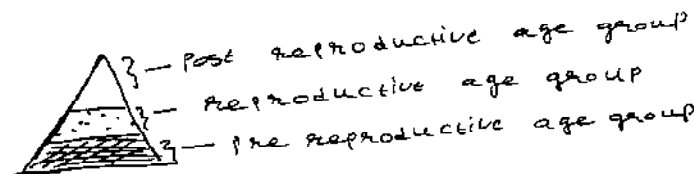 Post reproductive age group
reproductive age group
pre reproductive age group